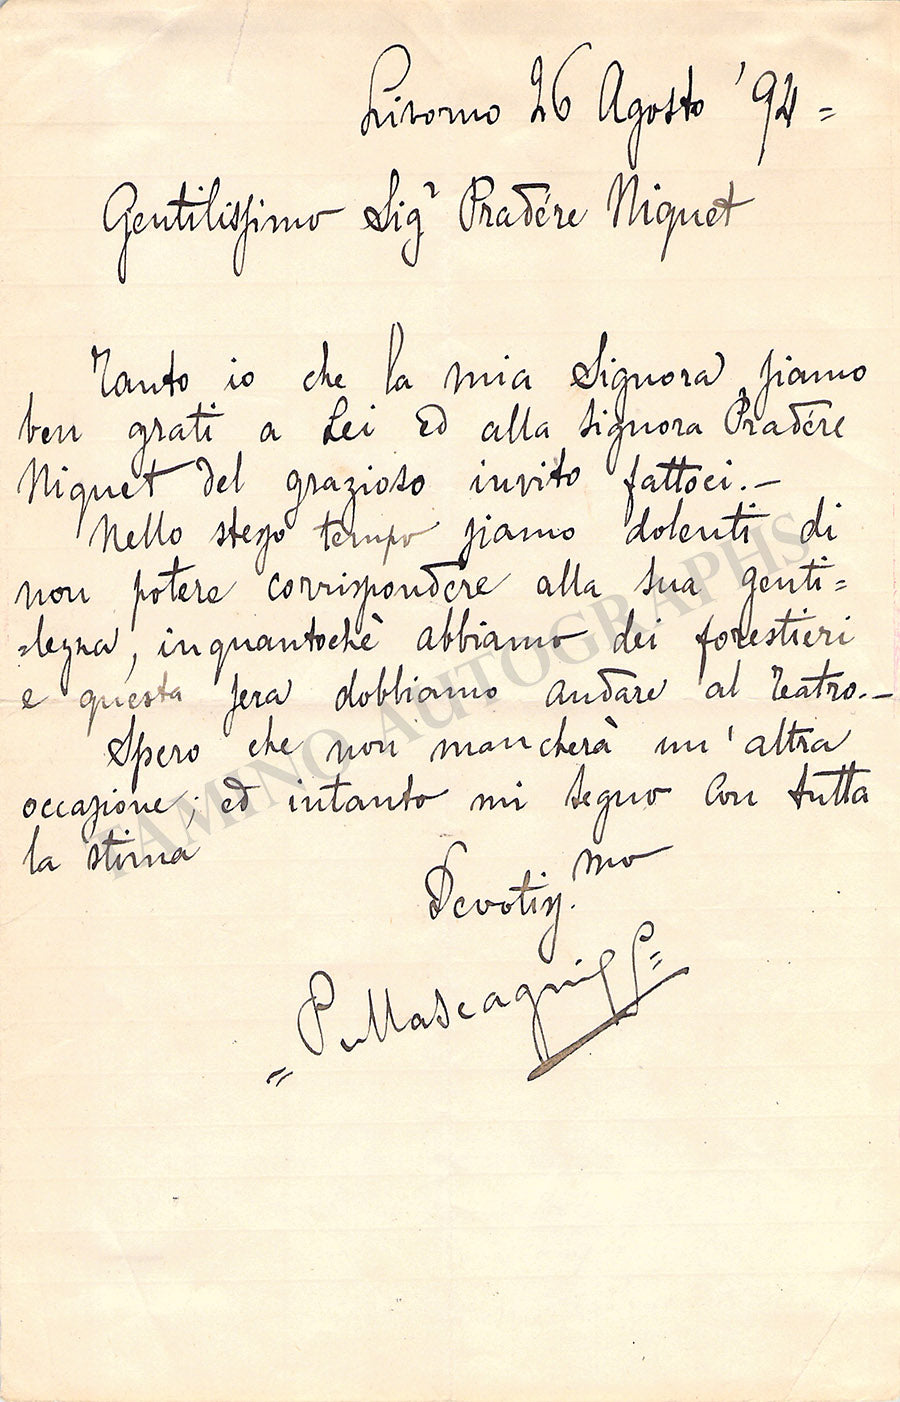 Livorno 26 Agosto '94 =
Gentilissimo Sigʳ Pradére Niquet
Tanto io che la mia Signora siamo
ben grati a Lei ed alla signora Pradére
Niquet del grazioso invito fattoci.—
Nello stesso tempo siamo dolenti di
non potere corrispondere alla sua genti=
=lezza, inquantochè abbiamo dei forestieri
e questa sera dobbiamo andare al Teatro.—
Spero che non mancherà un'altra
occazione; ed intanto mi segno con tutta
la stima
Devotiss.mo
= PMascagni =
TAMINO AUTOGRAPHS